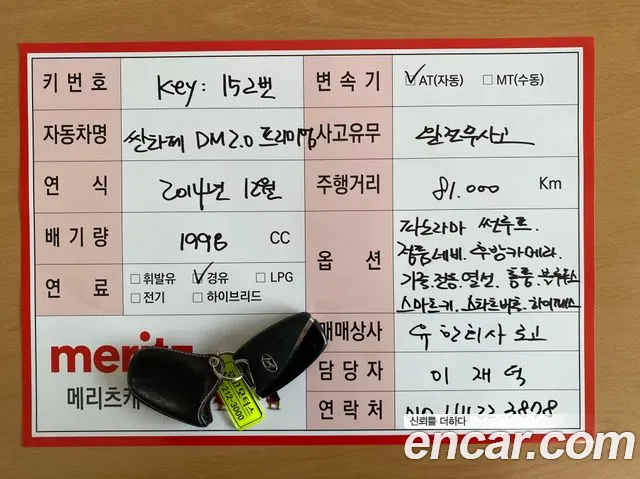 키 번 호 Key: 152번 변 속 기 ☑AT(자동) ☐MT(수동)
자동차명 싼타페 DM 2.0 프리미엄 사고유무 완전무사고
연 식 2014년 12월 주행거리 81.000 Km
배 기 량 1998 CC
옵 션 파노라마 썬루프.
정품네비. 후방카메라.
가죽.전동.열선.통풍.블루투스
스마트키. 스타트버튼. 하이패스
연 료 ☐휘발유 ☑경유 ☐LPG
☐전기 ☐하이브리드
매매상사
meritz
메리츠캐
담 당 자 이 재
모터스
212-3000
연 락 처 3828
신뢰를 더하다
encar.com